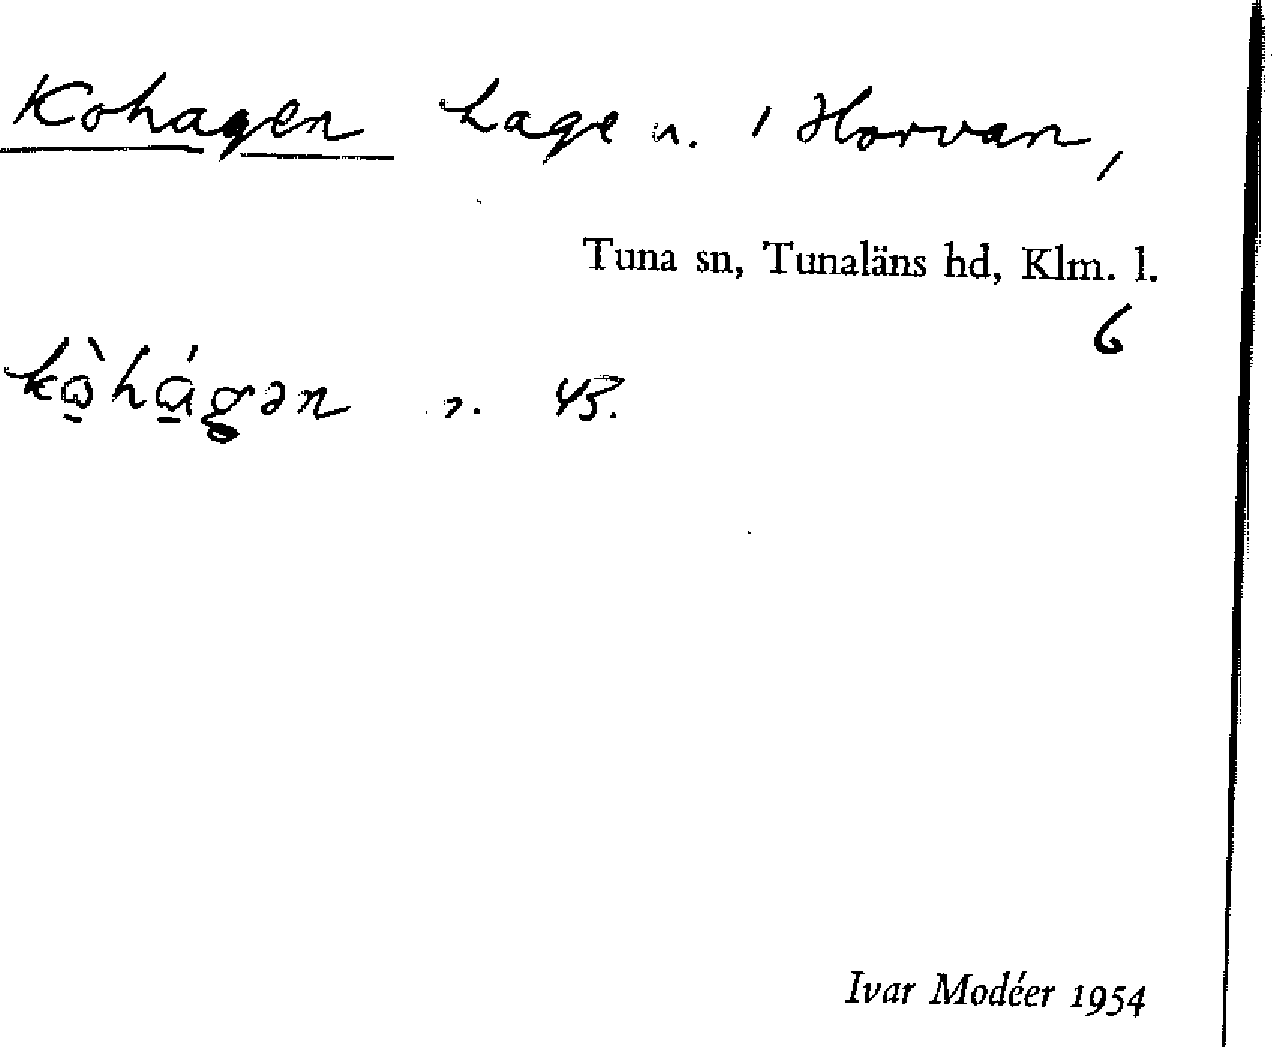 Kohagen hage n. i Horvan,
Tuna sn, Tunaläns hd, Klm. l.
6
kò̱há̱gən
Ivar Modéer 1954